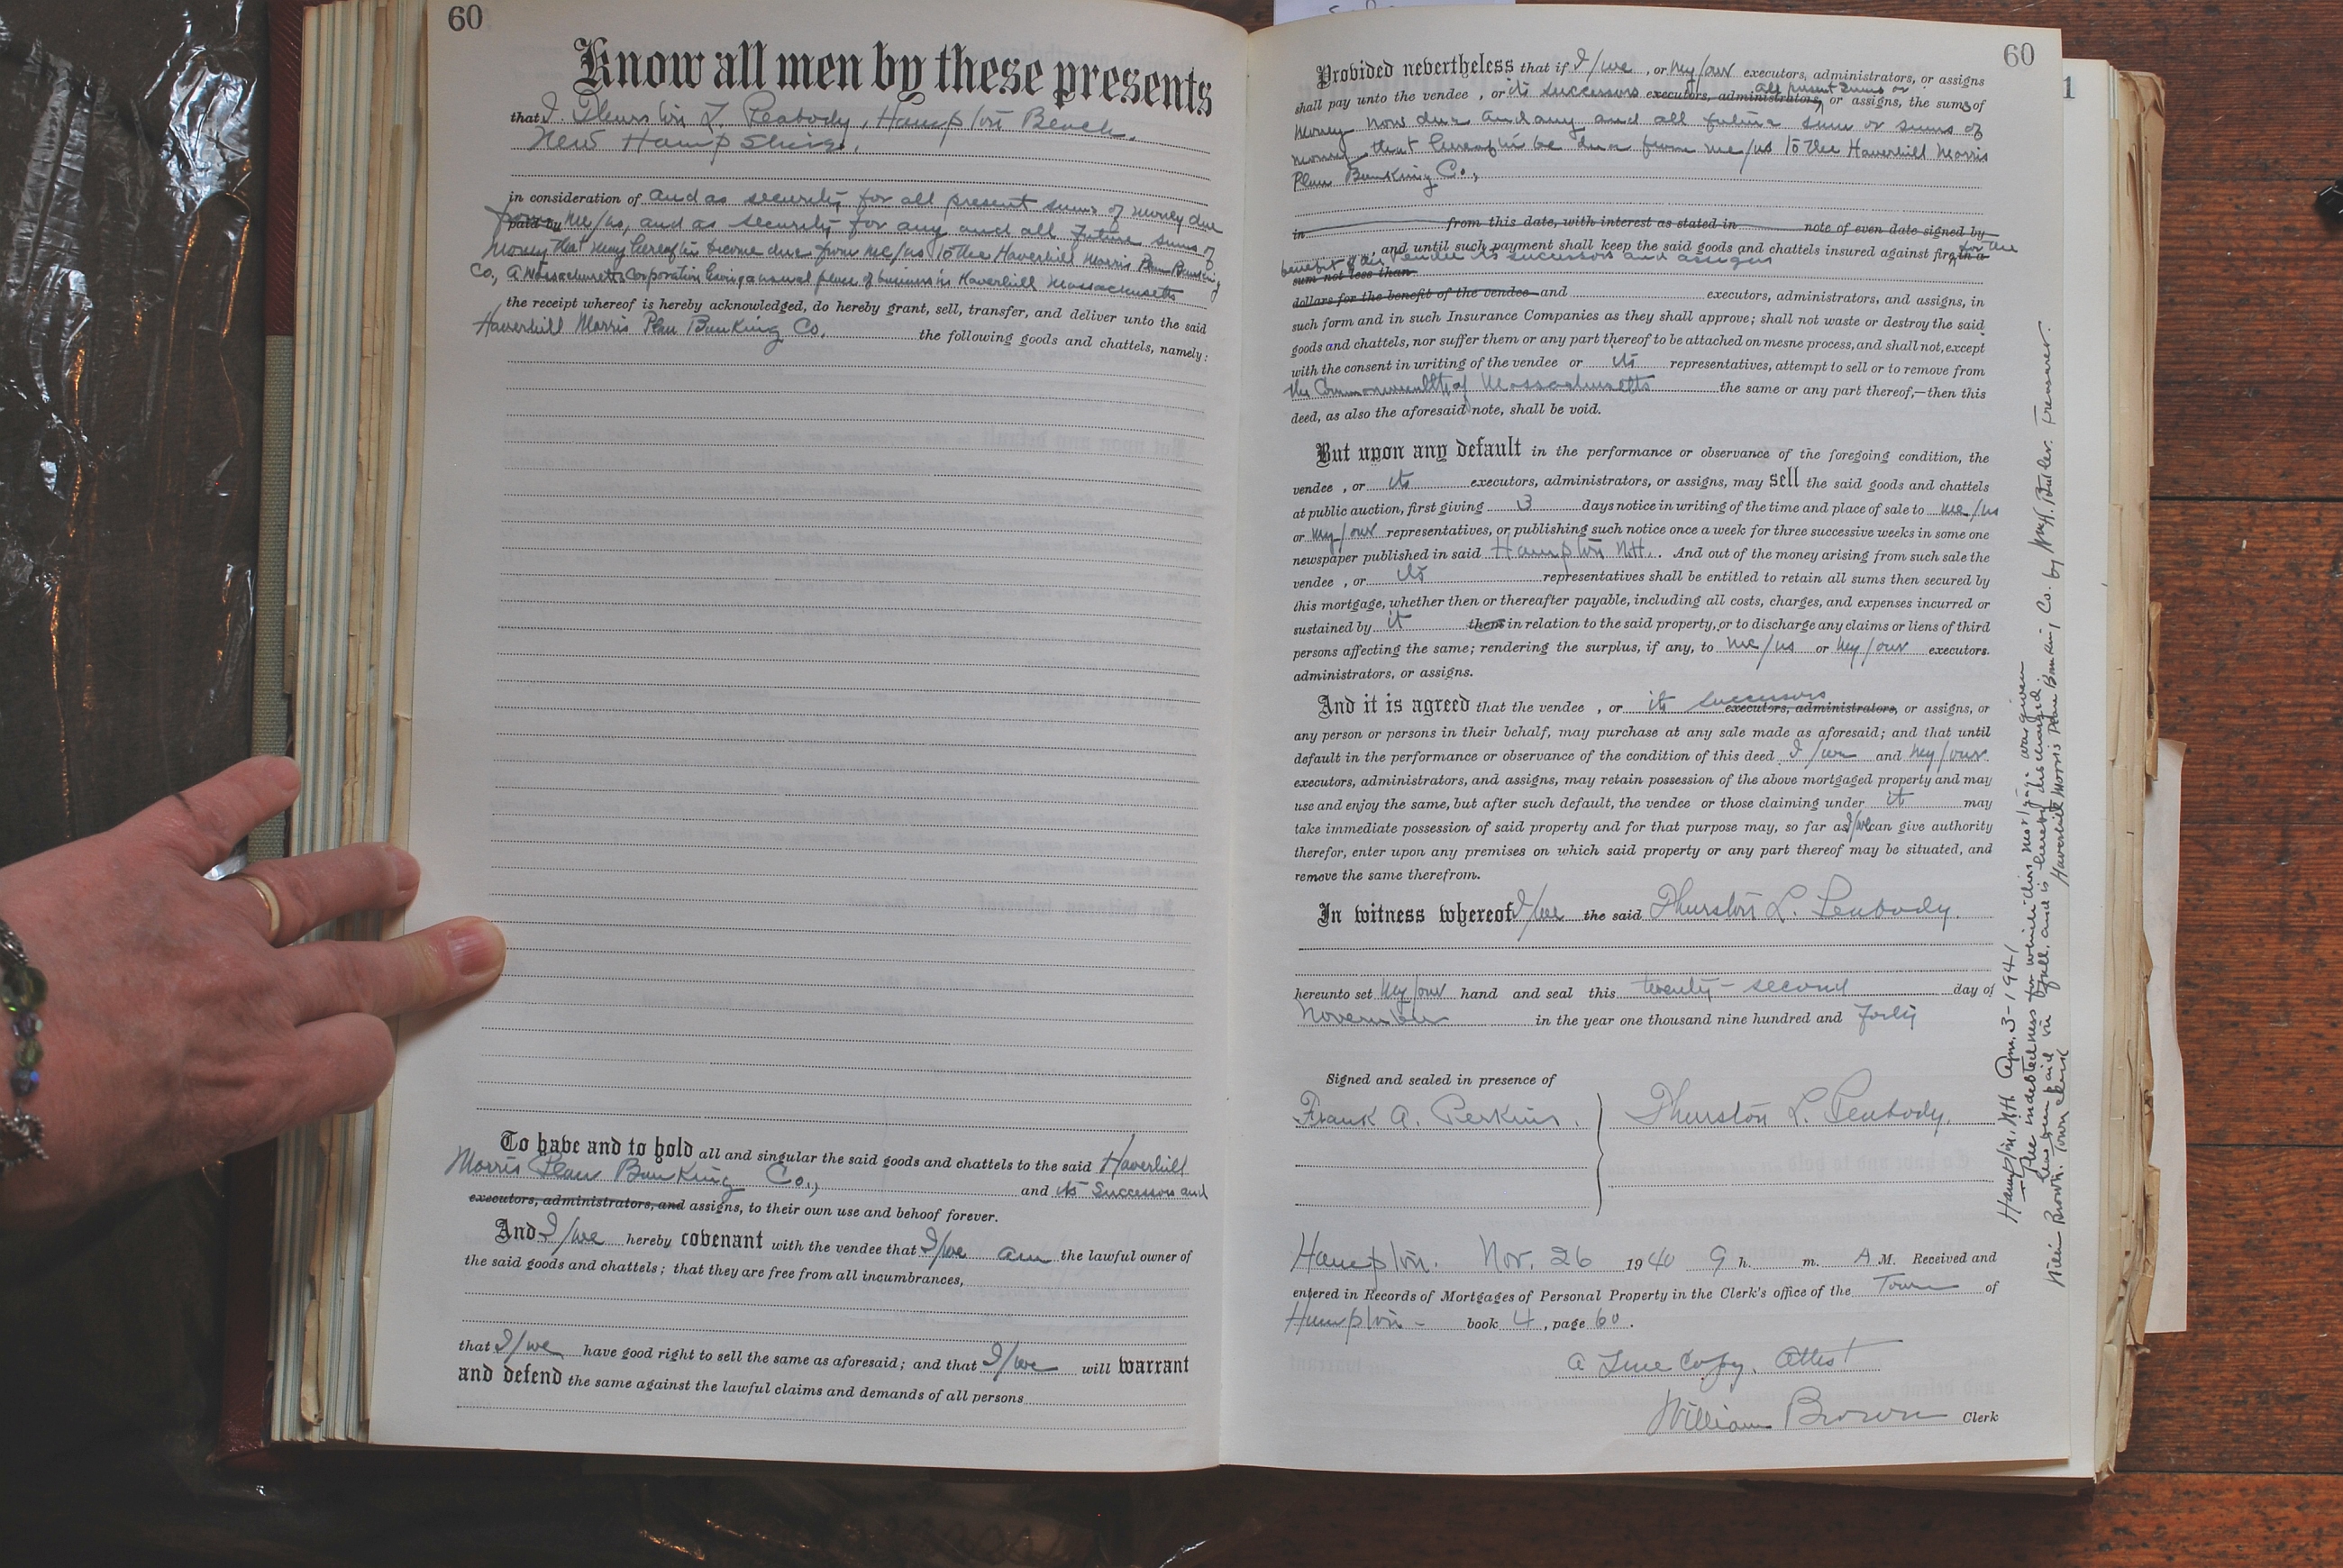 60
Know all men by these presents
that I. Thurston L. Peabody, Hampton Beach.
New Hampshire.
in consideration of and as security for all present sums of money due
from paid by me/us, and as security for any and all future sums of
money that may hereafter become due from me/us to the Haverhill Morris Plan Banking
Co, a Massachusetts Corporation having a usual place of business in Haverhill Massachusetts
the receipt whereof is hereby acknowledged, do hereby grant, sell, transfer, and deliver unto the said
Haverhill Morris Plan Banking Co. the following goods and chattels, namely:
To have and to hold all and singular the said goods and chattels to the said Haverhill
Morris Plan Banking Co., and its Successors and
executors, administrators, and assigns, to their own use and behoof forever.
And I/we hereby covenant with the vendee that I/we am the lawful owner of
the said goods and chattels; that they are free from all incumbrances,
that I/we have good right to sell the same as aforesaid; and that I/we will warrant
and defend the same against the lawful claims and demands of all persons
60
1
Provided nevertheless that if I/we, or my/our executors, administrators, or assigns
all present sums or
shall pay unto the vendee , or its successors executors, administrators, or assigns, the sums of
money now due and any and all future sum or sums of
money that hereafter be due from me/us to the Haverhill Morris
Plan Banking Co.,
in from this date, with interest as stated in note of even date signed by
and until such payment shall keep the said goods and chattels insured against fire, in a for the
benefit of the vendee its successors and assigns
sum not less than
dollars for the benefit of the vendee and executors, administrators, and assigns, in
such form and in such Insurance Companies as they shall approve; shall not waste or destroy the said
goods and chattels, nor suffer them or any part thereof to be attached on mesne process, and shall not, except
with the consent in writing of the vendee or its representatives, attempt to sell or to remove from
the Commonwealth of Massachusetts the same or any part thereof,—then this
deed, as also the aforesaid note, shall be void.
But upon any default in the performance or observance of the foregoing condition, the
vendee , or its executors, administrators, or assigns, may sell the said goods and chattels
at public auction, first giving 3 days notice in writing of the time and place of sale to me/us
or my/our representatives, or publishing such notice once a week for three successive weeks in some one
newspaper published in said Hampton N.H. . And out of the money arising from such sale the
vendee , or its representatives shall be entitled to retain all sums then secured by
this mortgage, whether then or thereafter payable, including all costs, charges, and expenses incurred or
sustained by it them in relation to the said property, or to discharge any claims or liens of third
persons affecting the same; rendering the surplus, if any, to me/us or my/our executors.
administrators, or assigns.
And it is agreed that the vendee , or its successors executors, administrators, or assigns, or
any person or persons in their behalf, may purchase at any sale made as aforesaid; and that until
default in the performance or observance of the condition of this deed I/we and my/our
executors, administrators, and assigns, may retain possession of the above mortgaged property and may
use and enjoy the same, but after such default, the vendee or those claiming under it may
take immediate possession of said property and for that purpose may, so far as I/we can give authority
therefor, enter upon any premises on which said property or any part thereof may be situated, and
remove the same therefrom.
In witness whereof I/we the said Thurston L. Peabody.
hereunto set my/our hand and seal this twenty-second day of
November in the year one thousand nine hundred and forty
Signed and sealed in presence of
Frank A. Perkins. Thurston L. Peabody.
Hampton. Nov. 26 1940 9 h. m. A M. Received and
entered in Records of Mortgages of Personal Property in the Clerk's office of the Town of
Hampton - book 4 , page 60 .
A True Copy. Attest
William Brown Clerk
Hampton, N.H. 3-1941
The indebtedness for which this was given
has been paid in full, and is hereby discharged.
Haverhill Morris Plan Banking Co. by Treasurer.
Brown. Town Clerk